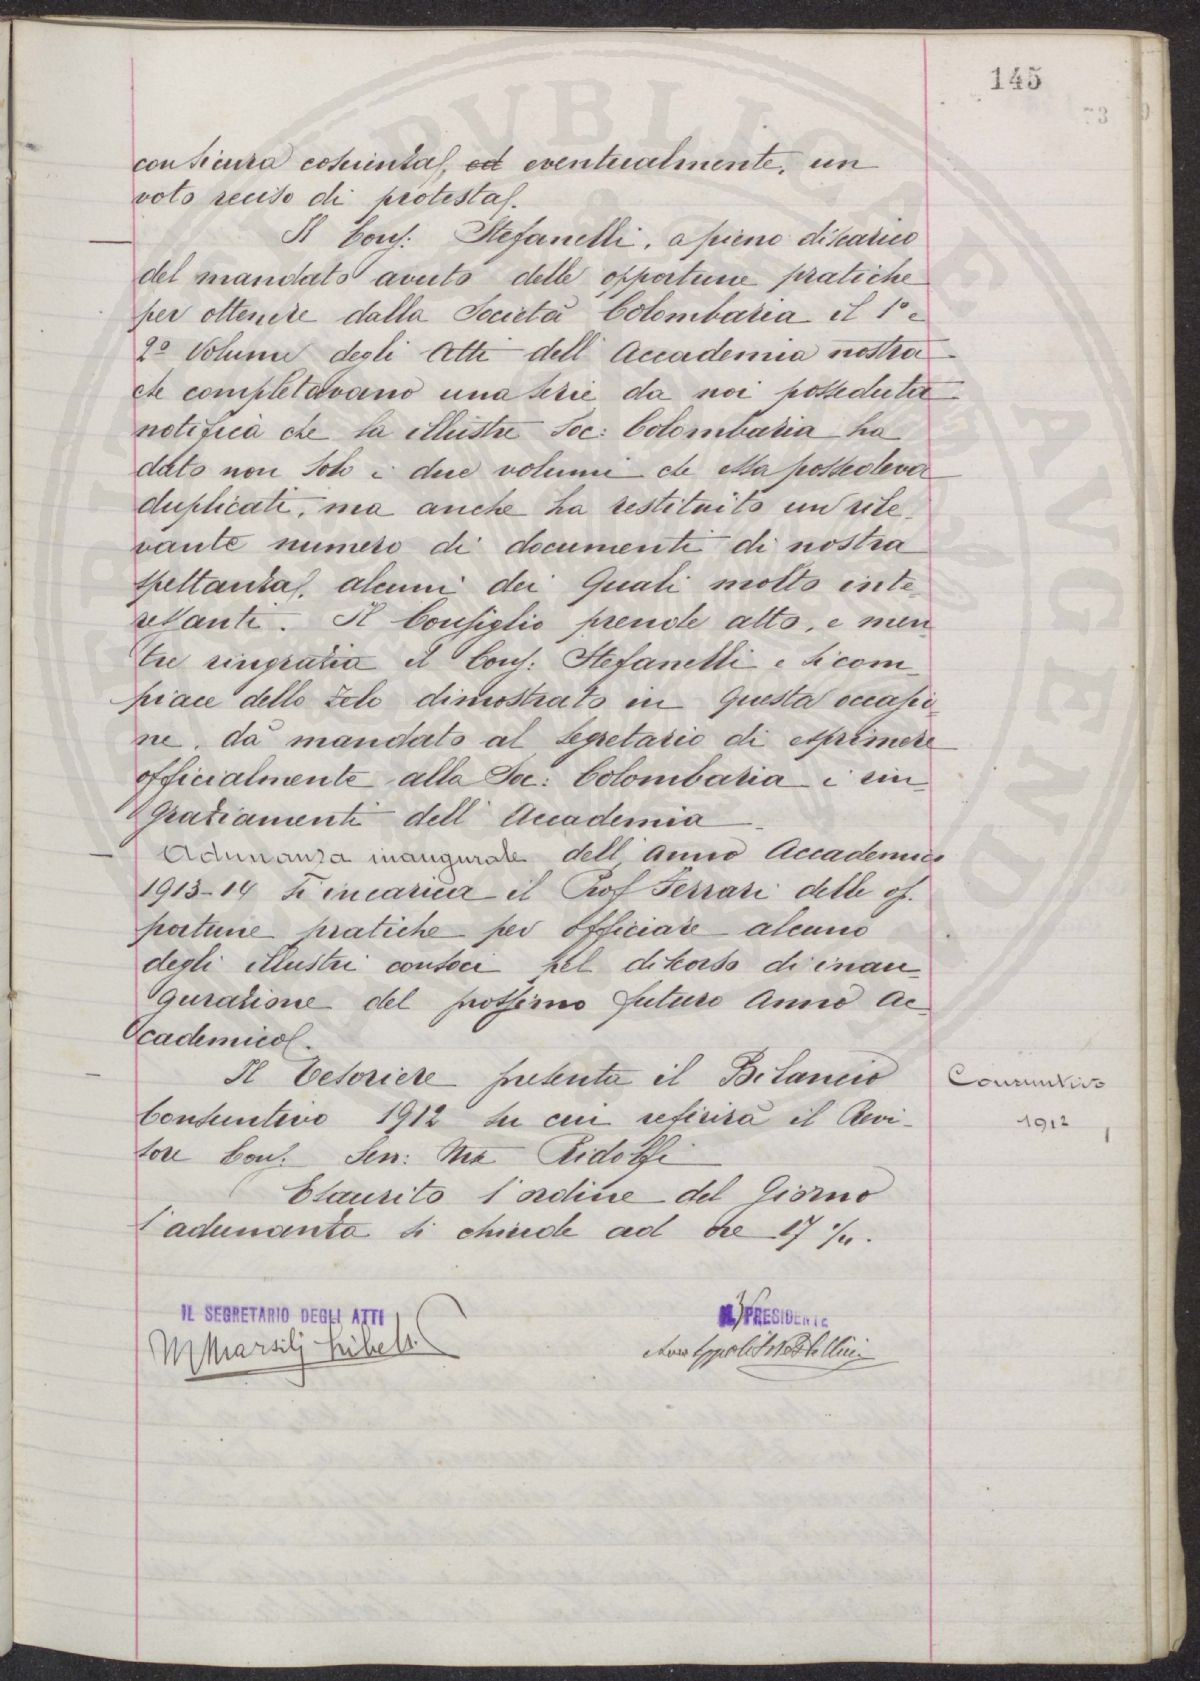 145
73
con sicura coscienza, ed eventualmente, un
voto reciso di protesta.
Il Cons: Stefanelli, a pieno discarico
del mandato avuto delle opportune pratiche
per ottenere dalla Società Colombaria il 1º e
2º Volume degli Atti dell'Accademia nostra
che completavano una serie da noi posseduta
notifica che la illustre Soc: Colombaria ha
dato non solo i due volumi che essa possedeva
duplicati, ma anche ha restituito un rile-
vante numero di documenti di nostra
spettanza, alcuni dei quali molto inte-
ressanti. Il Consiglio prende atto, e men-
tre ringrazia il Cons: Stefanelli e si com-
piace dello zelo dimostrato in questa occasio-
ne, dà mandato al Segretario di esprimere
officialmente alla Soc: Colombaria i rin-
graziamenti dell'Accademia.
Adunanza inaugurale dell'Anno Accademico
1913-14 Si incarica il Prof Ferrari delle op-
portune pratiche per officiare alcuno
degli illustri consoci pel discorso di inau-
gurazione del prossimo futuro Anno Ac-
cademico.
Il Tesoriere presenta il Bilancio
Consuntivo 1912 su cui riferirà il Revi-
sore Cons. Sen: Ridolfi
Consuntivo
1912
Esaurito l'ordine del Giorno
l'adunanza si chiude ad ore 17
IL SEGRETARIO DEGLI ATTI
IL PRESIDENTE
M Marsilj Libelli